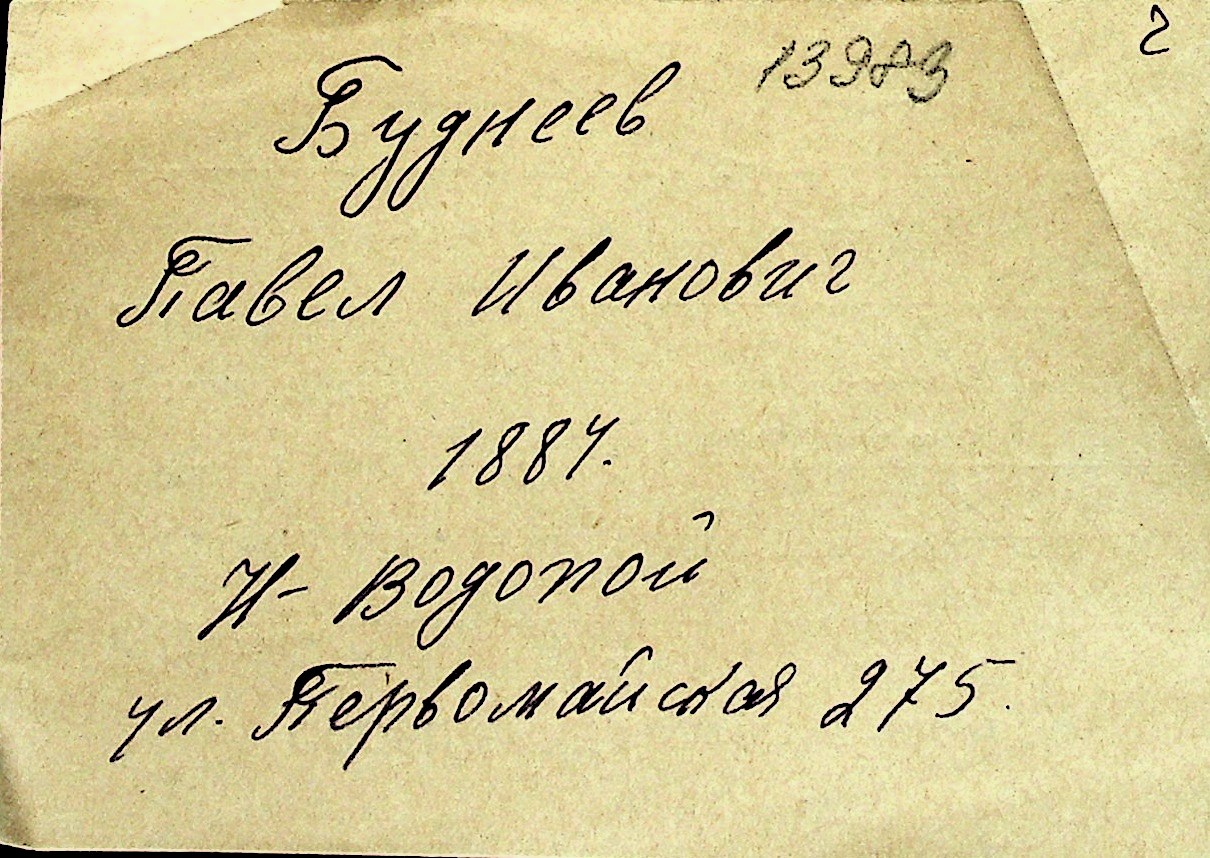 2
13983
Буднеев
Павел Иванович
1884.
Н- Водопой
ул. Первомайская 275.